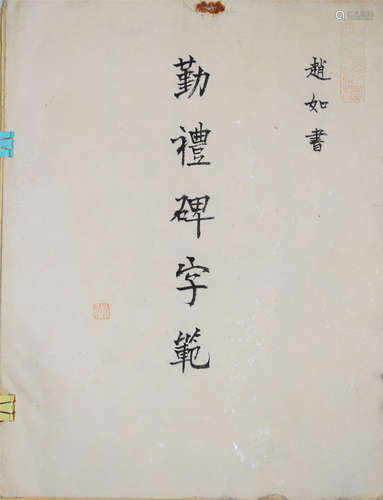 趙如書
勤禮碑字範